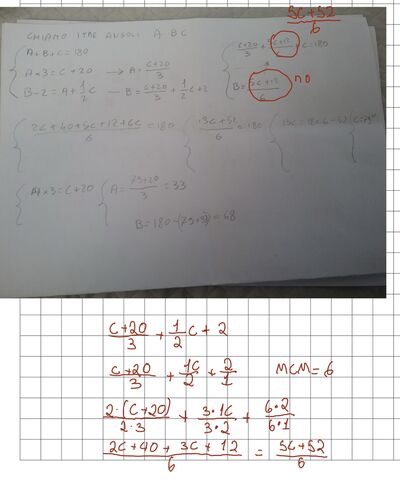 5C+52
6
CHIAMO I TRE ANGOLI A B C
A+B+C=180
A×3=C+20 → A=C+20/3
B-2=A+1/2C — B=C+20/3+1/2C+2
C+20/3+5C+12/6+C=180
B=5C+12/6 no
2C+40+5C+12+6C/6=180
13C+52/6=180
A×3=C+20
A=79+20/3=33
=68
C+20/3+1/2C+2
C+20/3+1C/2+2/1 MCM=6
2·(C+20)/2·3+3·1C/3·2+6·2/6·1
2C+40+3C+12/6=5C+52/6